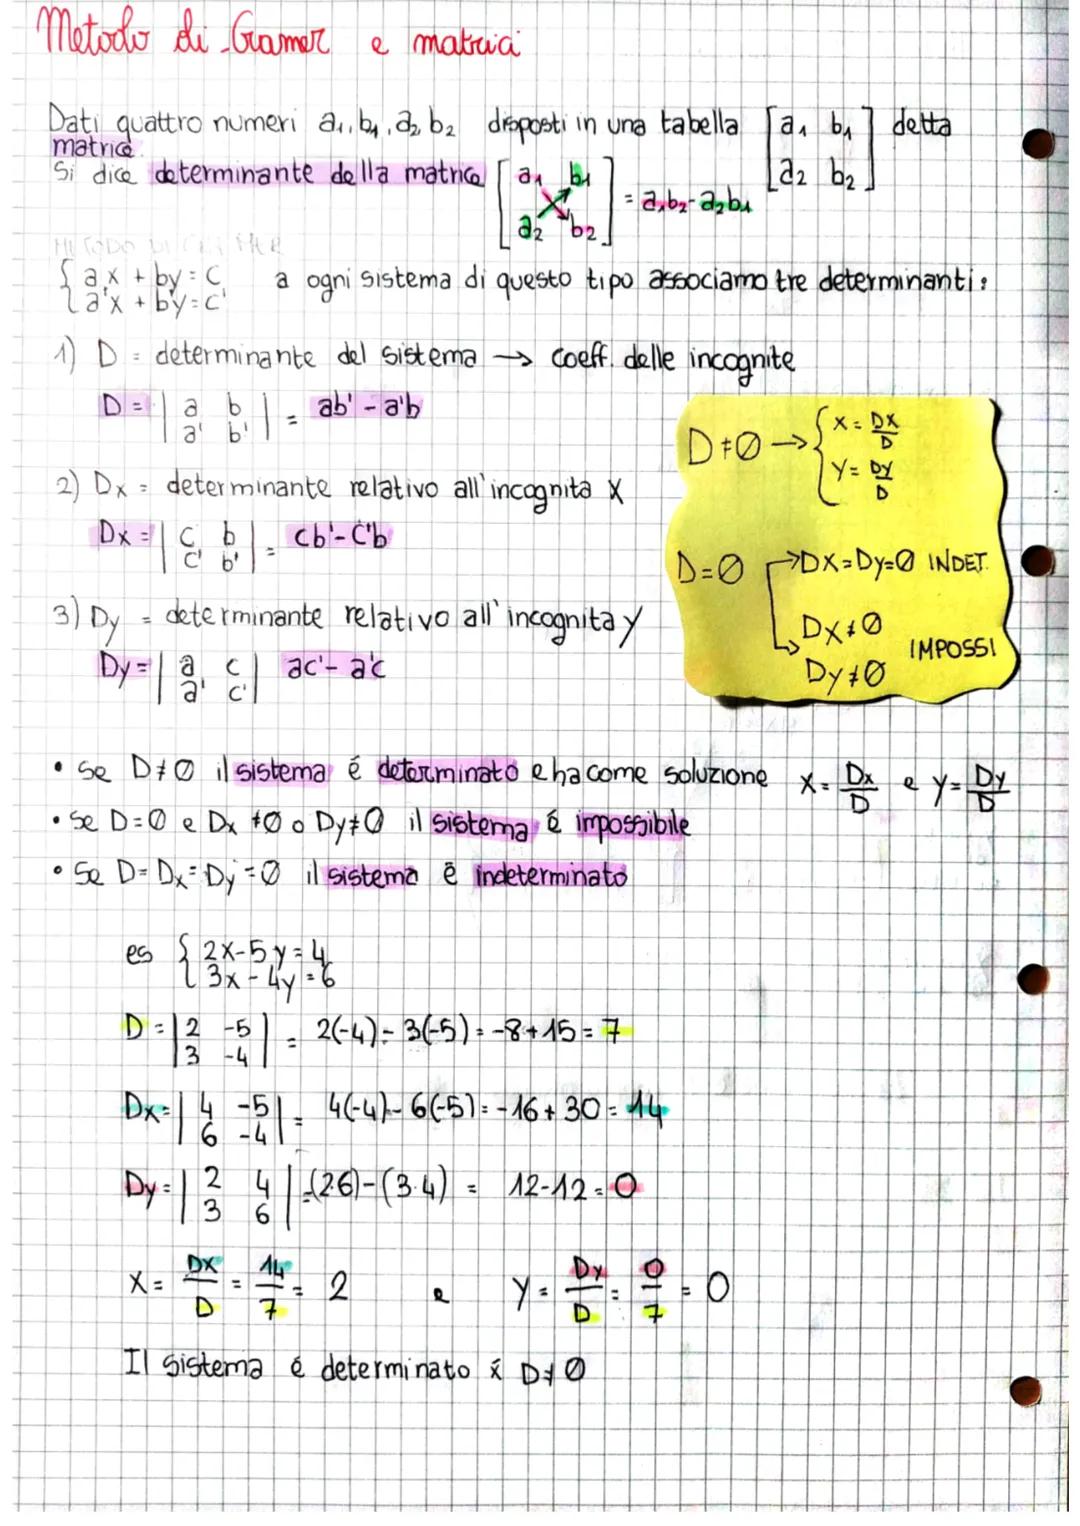 Metodo di Cramer e matrici
Dati quattro numeri a₁, b₁, a₂ b₂ disposti in una tabella [a₁ b₁ detta
matrice. a₂ b₂]
Si dice determinante della matrice [a₁ b₁
a₂ b₂] = a₁b₂-a₂b₁
METODO DI CRAMER
{ax + by = c a ogni sistema di questo tipo associamo tre determinanti:
a'x + b'y = c'
1) D = determinante del sistema → coeff. delle incognite
D = | a b | = ab' - a'b
| a' b' |
2) Dx = determinante relativo all'incognita x
Dx = | c b | = cb'-c'b
| c' b' |
3) Dy = determinante relativo all'incognita y
Dy = | a c | ac'- a'c
| a' c' |
D≠0 → { x = DX/D
y = Dy/D
D=0 →DX=Dy=0 INDET.
→ DX≠0
Dy≠0 IMPOSSI
• Se D≠0 il sistema é determinato e ha come soluzione x = Dx/D e y = Dy/D
• Se D=0 e Dx ≠0 o Dy≠0 il sistema é impossibile
• Se D=Dx=Dy=0 il sistema è indeterminato
es { 2x-5y=4
3x-4y=6
D = | 2 -5 | = 2(-4)- 3(-5)= -8+15=7
| 3 -4 |
Dx = | 4 -5 | = 4(-4)- 6(-5)= -16+30=14
| 6 -4 |
Dy = | 2 4 | =(2·6)-(3·4) = 12-12=0
| 3 6 |
x = DX/D = 14/7 = 2 e y = Dy/D = 0/7 = 0
Il sistema é determinato x D≠0